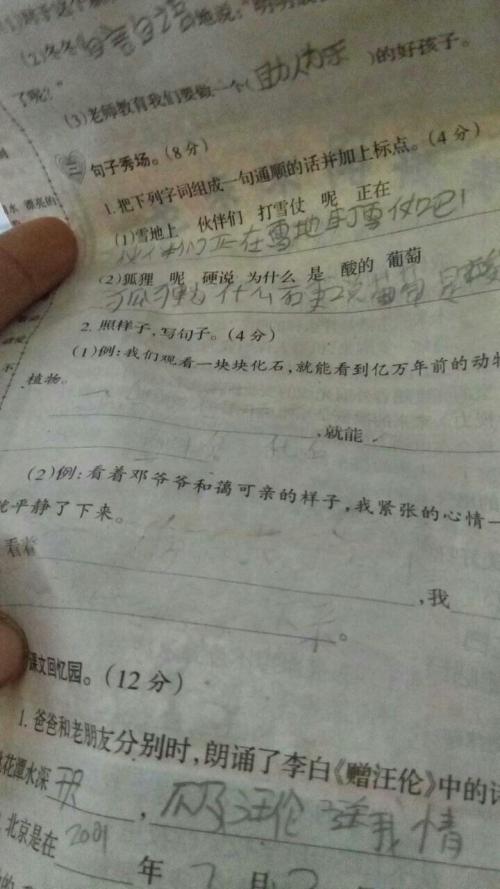 (2)冬冬自言自语地说:"明明
了呢?"
(3)老师教育我们要做一个(助人为乐)的好孩子。
三 句子秀场。(8分)
1.把下列字词组成一句通顺的话并加上标点。(4分)
(1)雪地上 伙伴们 打雪仗 呢 正在
伙伴们正在雪地打雪仗吧!
(2)狐狸 呢 硬说 为什么 是 酸的 葡萄
狐狸为什么硬说葡萄是酸
2.照样子,写句子。(4分)
(1)例:我们观看一块块化石,就能看到亿万年前的动物
植物。
,就能
(2)例:看着邓爷爷和蔼可亲的样子,我紧张的心情一
平静了下来。
看着
,我
。
课文回忆园。(12分)
1.爸爸和老朋友分别时,朗诵了李白《赠汪伦》中的诗
花潭水深 ,不及汪伦送我情
北京是在2001年7月